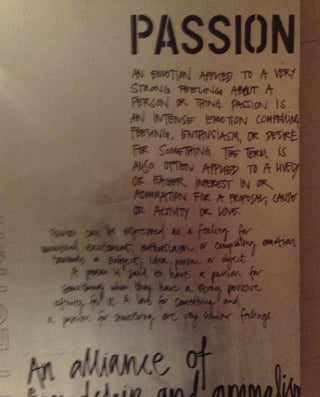 PASSION
AN EMOTION APPLIED TO A VERY
STRONG FEELING ABOUT A
PERSON OR THING. PASSION IS
AN INTENSE EMOTION COMPELLING
FEELING, ENTHUSIASM, OR DESIRE
FOR SOMETHING. THE TERM IS
ALSO OFTEN APPLIED TO A LIVELY
OR EAGER INTEREST IN OR
ADMIRATION FOR A PROPOSAL, CAUSE
OR ACTIVITY OR LOVE
can be expressed as a feeling for
unusual excitement, enthusiasm or compelling emotion
towards a subject, idea, person or object.
A person is said to have a passion for
something when they have a strong positive
affinity for it. A love for something and
a passion for something are very similar feelings.
An alliance of
and